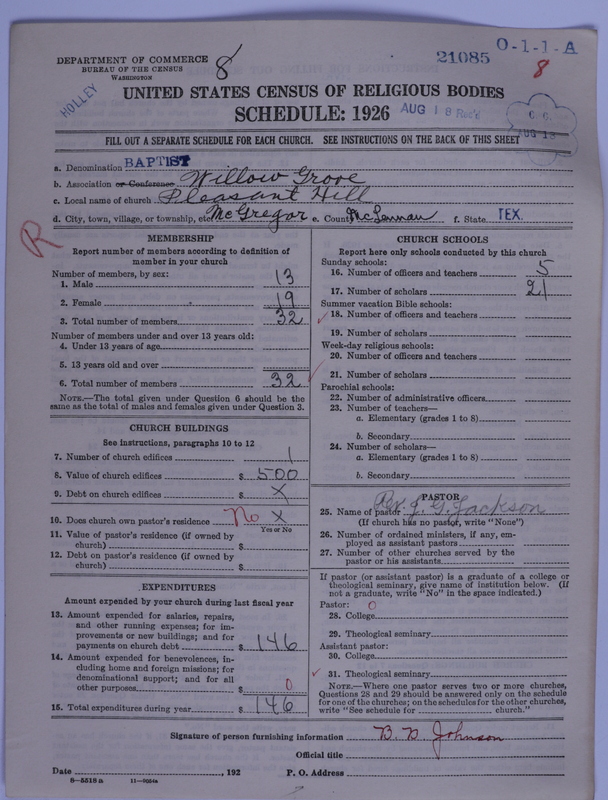 DEPARTMENT OF COMMERCE
BUREAU OF THE CENSUS
WASHINGTON
8
21085
O-1-1-A
8
HOLLEY
UNITED STATES CENSUS OF RELIGIOUS BODIES
SCHEDULE: 1926
AUG 18 Rec'd
C. C.
AUG 13
FILL OUT A SEPARATE SCHEDULE FOR EACH CHURCH. SEE INSTRUCTIONS ON THE BACK OF THIS SHEET
a. Denomination BAPTIST
b. Association or Conference Willow Grove
c. Local name of church Pleasant Hill
d. City, town, village, or township, etc. McGregor e. County McLennan f. State TEX.
R
MEMBERSHIP
Report number of members according to definition of
member in your church
Number of members, by sex:
1. Male 13
2. Female 19
3. Total number of members 32
Number of members under and over 13 years old:
4. Under 13 years of age
5. 13 years old and over
6. Total number of members 32
NOTE.—The total given under Question 6 should be the
same as the total of males and females given under Question 3.
CHURCH BUILDINGS
See instructions, paragraphs 10 to 12
7. Number of church edifices 1
8. Value of church edifices $ 500
9. Debt on church edifices $ X
10. Does church own pastor's residence No X
Yes or No
11. Value of pastor's residence (if owned by
church) $
12. Debt on pastor's residence (if owned by
church) $
EXPENDITURES
Amount expended by your church during last fiscal year
13. Amount expended for salaries, repairs,
and other running expenses; for im-
provements or new buildings; and for
payments on church debt $ 146
14. Amount expended for benevolences, in-
cluding home and foreign missions; for
denominational support; and for all
other purposes $ 0
15. Total expenditures during year $ 146
CHURCH SCHOOLS
Report here only schools conducted by this church
Sunday schools:
16. Number of officers and teachers 5
17. Number of scholars 21
Summer vacation Bible schools:
18. Number of officers and teachers
19. Number of scholars
Week-day religious schools:
20. Number of officers and teachers
21. Number of scholars
Parochial schools:
22. Number of administrative officers
23. Number of teachers—
a. Elementary (grades 1 to 8)
b. Secondary
24. Number of scholars—
a. Elementary (grades 1 to 8)
b. Secondary
PASTOR
25. Name of pastor Rev. J. G. Jackson
(If church has no pastor, write "None")
26. Number of ordained ministers, if any, em-
ployed as assistant pastors
27. Number of other churches served by the
pastor or his assistants
If pastor (or assistant pastor) is a graduate of a college or
theological seminary, give name of institution below. (If
not a graduate, write "No" in the space indicated.)
Pastor: 0
28. College
29. Theological seminary
Assistant pastor:
30. College
31. Theological seminary
NOTE.—Where one pastor serves two or more churches,
Questions 28 and 29 should be answered only on the schedule
for one of the churches; on the schedules for the other churches,
write "See schedule for church."
Signature of person furnishing information B. D. Johnson
Official title
Date , 192 P. O. Address
8—5518 a 11—9054a